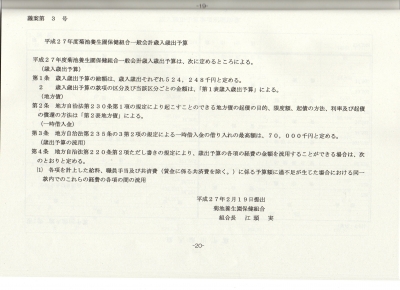 -19-
議案第 3 号
平成27年度菊池養生園保健組合一般会計歳入歳出予算
平成27年度菊池養生園保健組合一般会計歳入歳出予算は、次に定めるところによる。
(歳入歳出予算)
第1条 歳入歳出予算の総額は、歳入歳出それぞれ524,248千円と定める。
2 歳入歳出予算の款項の区分及び当該区分ごとの金額は、「第1表歳入歳出予算」による。
(地方債)
第2条 地方自治法第230条第1項の規定により起こすことのできる地方債の起債の目的、限度額、起債の方法、利率及び起債
の償還の方法は「第2表地方債」による。
(一時借入金)
第3条 地方自治法第235条の3第2項の規定による一時借入金の借り入れの最高額は、70,000千円と定める。
(歳出予算の流用)
第4条 地方自治法第220条第2項ただし書きの規定により、歳出予算の各項の経費の金額を流用することができる場合は、次
のとおりと定める。
(1) 各項を計上した給料、職員手当及び共済費(賃金に係る共済費を除く。)に係る予算額に過不足が生じた場合における同一
款内でのこれらの経費の各項の間の流用
平成27年2月19日提出
菊池養生園保健組合
組合長 江頭 実
-20-